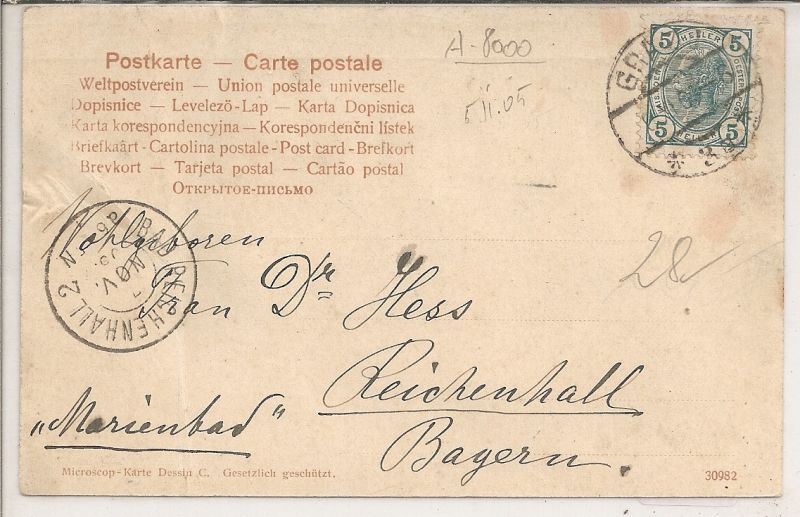 Postkarte — Carte postale
Weltpostverein — Union postale universelle
Dopisnice — Levelező-Lap — Karta Dopisnica
Karta korespondencyjna — Korespondenční lístek
Briefkaart - Cartolina postale - Post card - Brefkort
Brevkort — Tarjeta postal — Cartão postal
Открытое-письмо
A-8000
5.11.05
5 HELLER 5
5 5
BAD REICHENHALL 2
NOV.
28
Wohlgeboren
Frau Dr Hess
Reichenhall
„Marienbad"
Bayern.
Microscop-Karte Dessin C. Gesetzlich geschützt.
30982